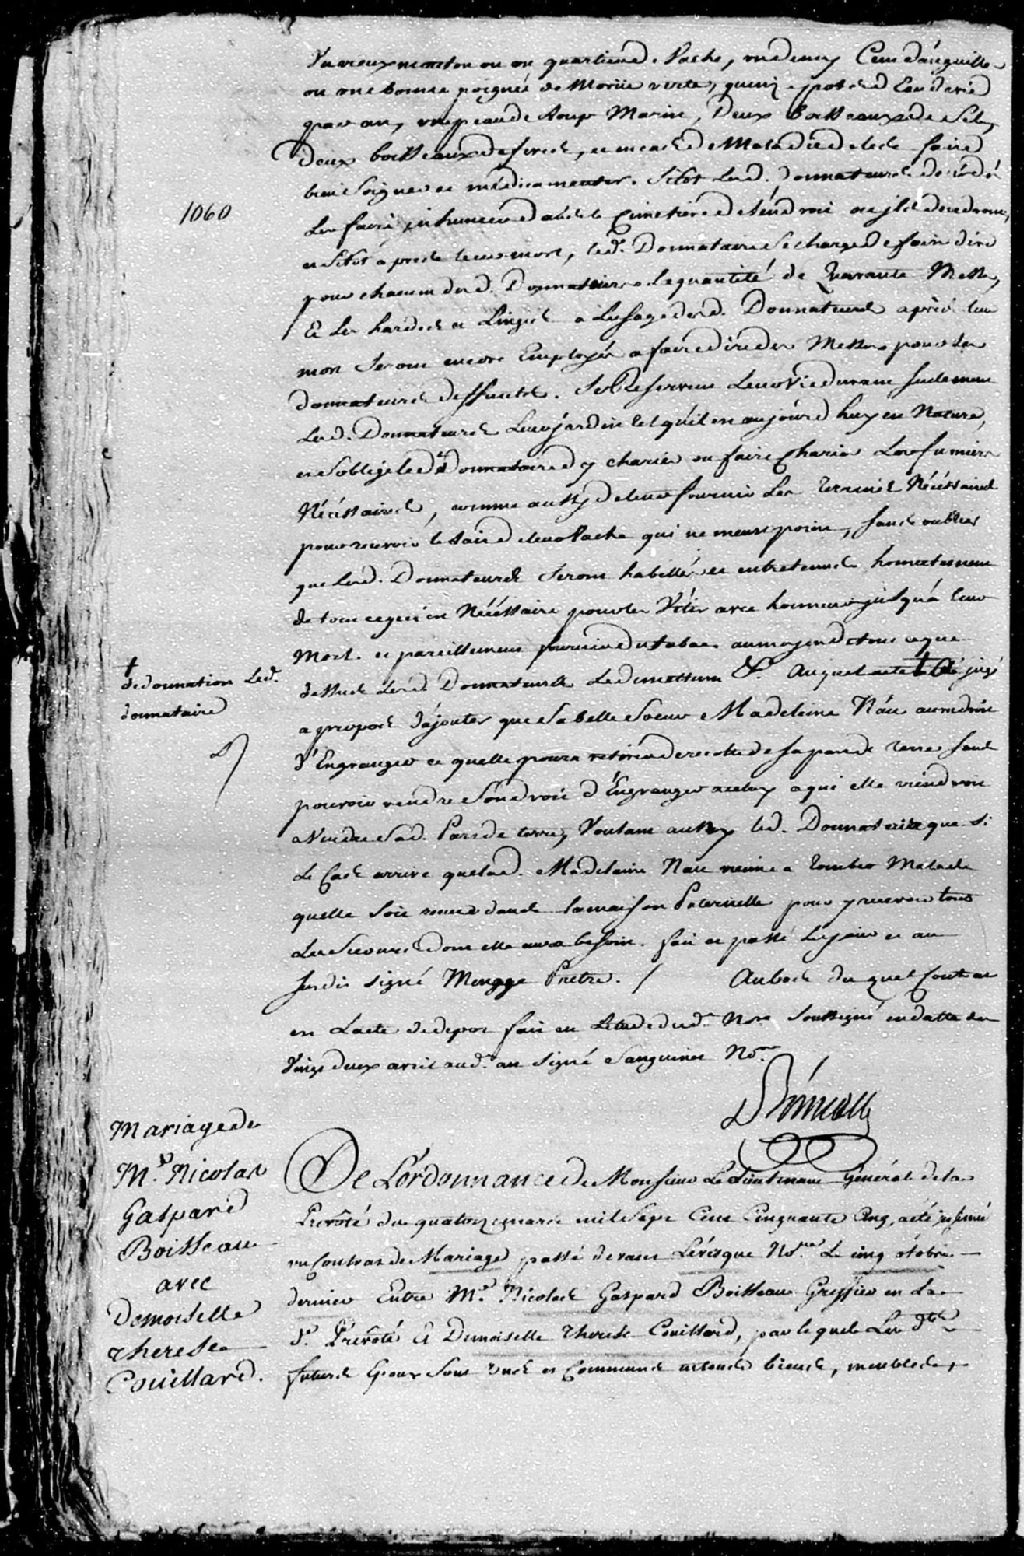 Un vieux mouton ou un quartier de Vache, un demy Cent d'anguille
ou une bonne poignée de Moruë verte, quinze pots d'Eau de vie
par an, une peau de Loup Marin, Deux boisseaux de Sel,
Deux boisseaux de feves, en cas de Maladie de les faire
bien Soigner et médicamenter. Sitot lesd. donnateurs decedés
Les faire inhumer dans le Cimetiere de l'endroit où ils deced​eront,
1060
et Sitot après leur mort, led. Donnataire Se charge de faire dire
pour chacun desd. Donnateurs la quantité de Quarante Messes,
Et Les hardes et Linges a L'usage desd. Donnateurs après leur
mort Seront encore Employés a faire dire des Messes pour les
donnateurs deffunts. Se Reservent Leur Vie durant Seulement
Lesd. Donnateurs Leur jardin tel qu'il est aujourd'huy en Nature,
et S'oblige led. Donnataire d'y charier ou faire Charier Les fumiers
Nécéssaires, comme aussy de leur fournir Les terrines Nécéssaires
pour recevoir le lait de leur Vache qui ne meurt point, Sans oublier
que lesd. Donnateurs Seront habillés et entretenus honnetement
de tout ce qui est Nécéssaire pour les Vétir avec honneur jusqu'à leur
Mort. et pareillement fournir du tabac au moyen de tout ce que
dessus Lesd. Donnateurs Se demettent &c. Auquel acte † a jugé
† de donnation Led.
donnataire
a propos d'ajouter que Sa belle Soeur Madeleine Nau aura droit
d'Engranger ce quelle pourra retirer de recolte de Sa part de terre Sans
pouvoir vendre Son droit d'Engranger a celuy a qui elle viendroit
a Vendre Sad. Part de terre, Voulant aussy led. Donnataire que Si
Le Cas arrive que lad. Madelaine Nau vienne a tomber Malade
quelle Soit recue dans la maison Paternelle pour y recevoir tous
Les Secours dont elle aura besoin. fait et passé Les jour et an
Susdit Signé Mongge Pretre. / Au bas du quel Contrat
est L'acte de depot fait en Létude dud. Nore Soussigné en datte du
Vingt deux avril aud. an Signé Sanguinet No.re
Mariage de
Mr. Nicolas
Gaspard
Boisseau
avec
Demoiselle
therese
Couillard.
De L'ordonnance de Monsieur Le Lieutenant Général de la
Prevôté du quatorze mars mil Sept Cent Cinquante Cinq, a été insinué
un Contrat de Mariage passé devant Lévêque No.re Le cinq octobre
dernier Entre Mr. Nicolas Gaspard Boisseau Greffier en La
d. Prevôté Et Demoiselle therese Couillard, par lequel Les d.
futurs Epoux Sont Uns et Communs en tous biens, meubles,